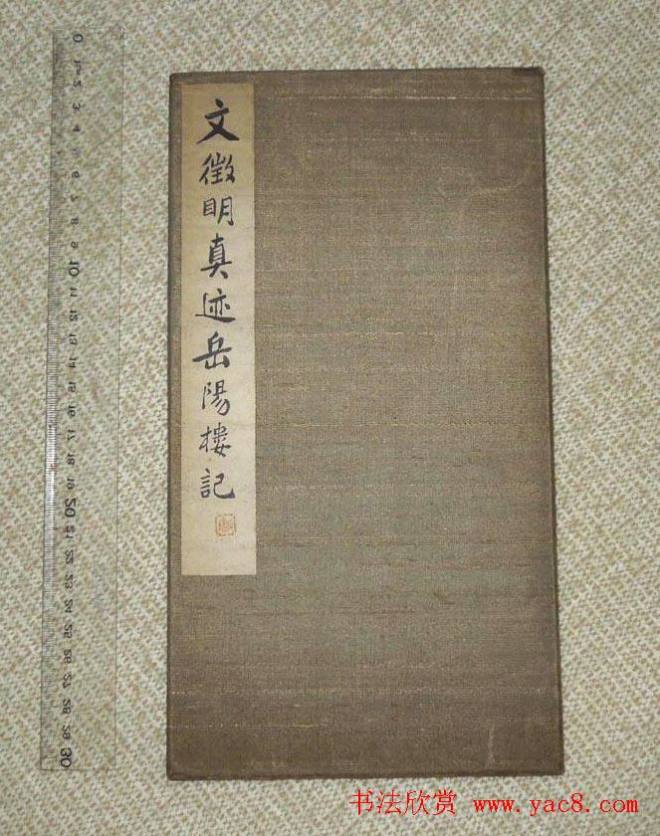 文徵明真迹岳陽樓記
0 1 2 3 4 5 6 7 8 9 10 11 12 13 14 15 16 17 18 19 20 21 22 23 24 25 26 27 28 29 30
书法欣赏 www.yac8.com